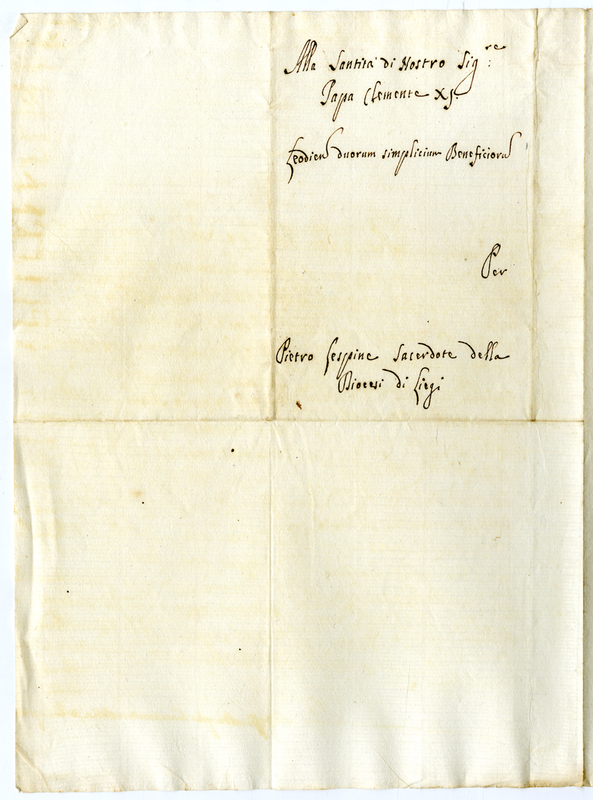 Alla Santità di Nostro Sig:re
Papa Clemente XI.
Leodien duorum simplicium Beneficioru
Per
Pietro Lespine Sacerdote della
Diocesi di Liegi